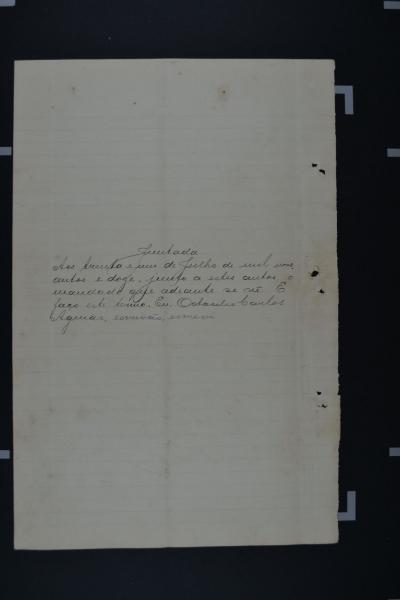 Juntada
Aos trinta e um de Julho de mil nove
centos e doze, junto a estes autos, o
mandado que adeante se vê. E
faço este termo. Eu Octacilio Carlos
Aguiar, escrivão, escrevi